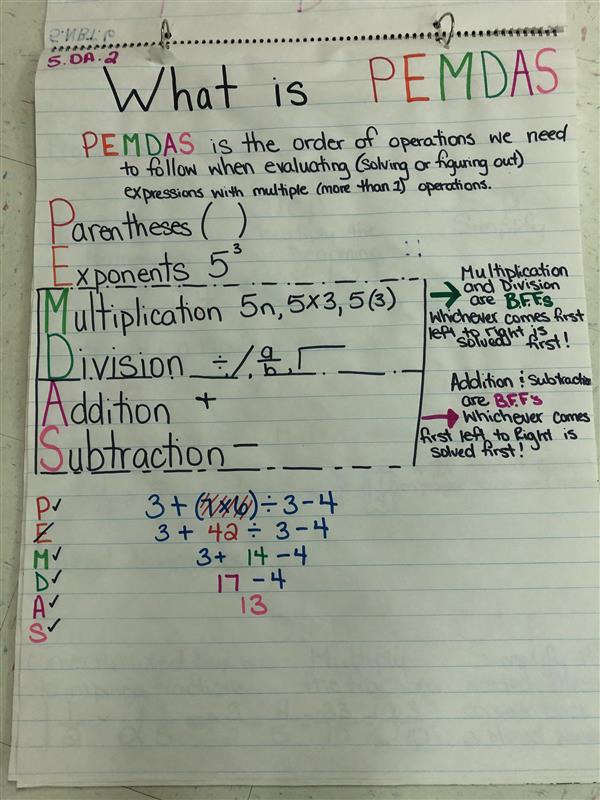 5.NBT.6
5.OA.2
What is PEMDAS
PEMDAS is the order of operations we need
to follow when evaluating (solving or figuring out)
expressions with multiple (more than 1) operations.
Parentheses ( )
Exponents 5³
Multiplication 5n, 5×3, 5(3)
Division ÷ / a/b, ⟌
Addition +
Subtraction −
→ Multiplication
and Division
are BFFs
Whichever comes first
left to right is
solved first!
Addition & Subtraction
are BFFs
→ Whichever comes
first left to Right is
solved first!
P✓ 3 + (7×6) ÷ 3 − 4
E 3 + 42 ÷ 3 − 4
M✓ 3 + 14 − 4
D✓ 17 − 4
A✓ 13
S✓